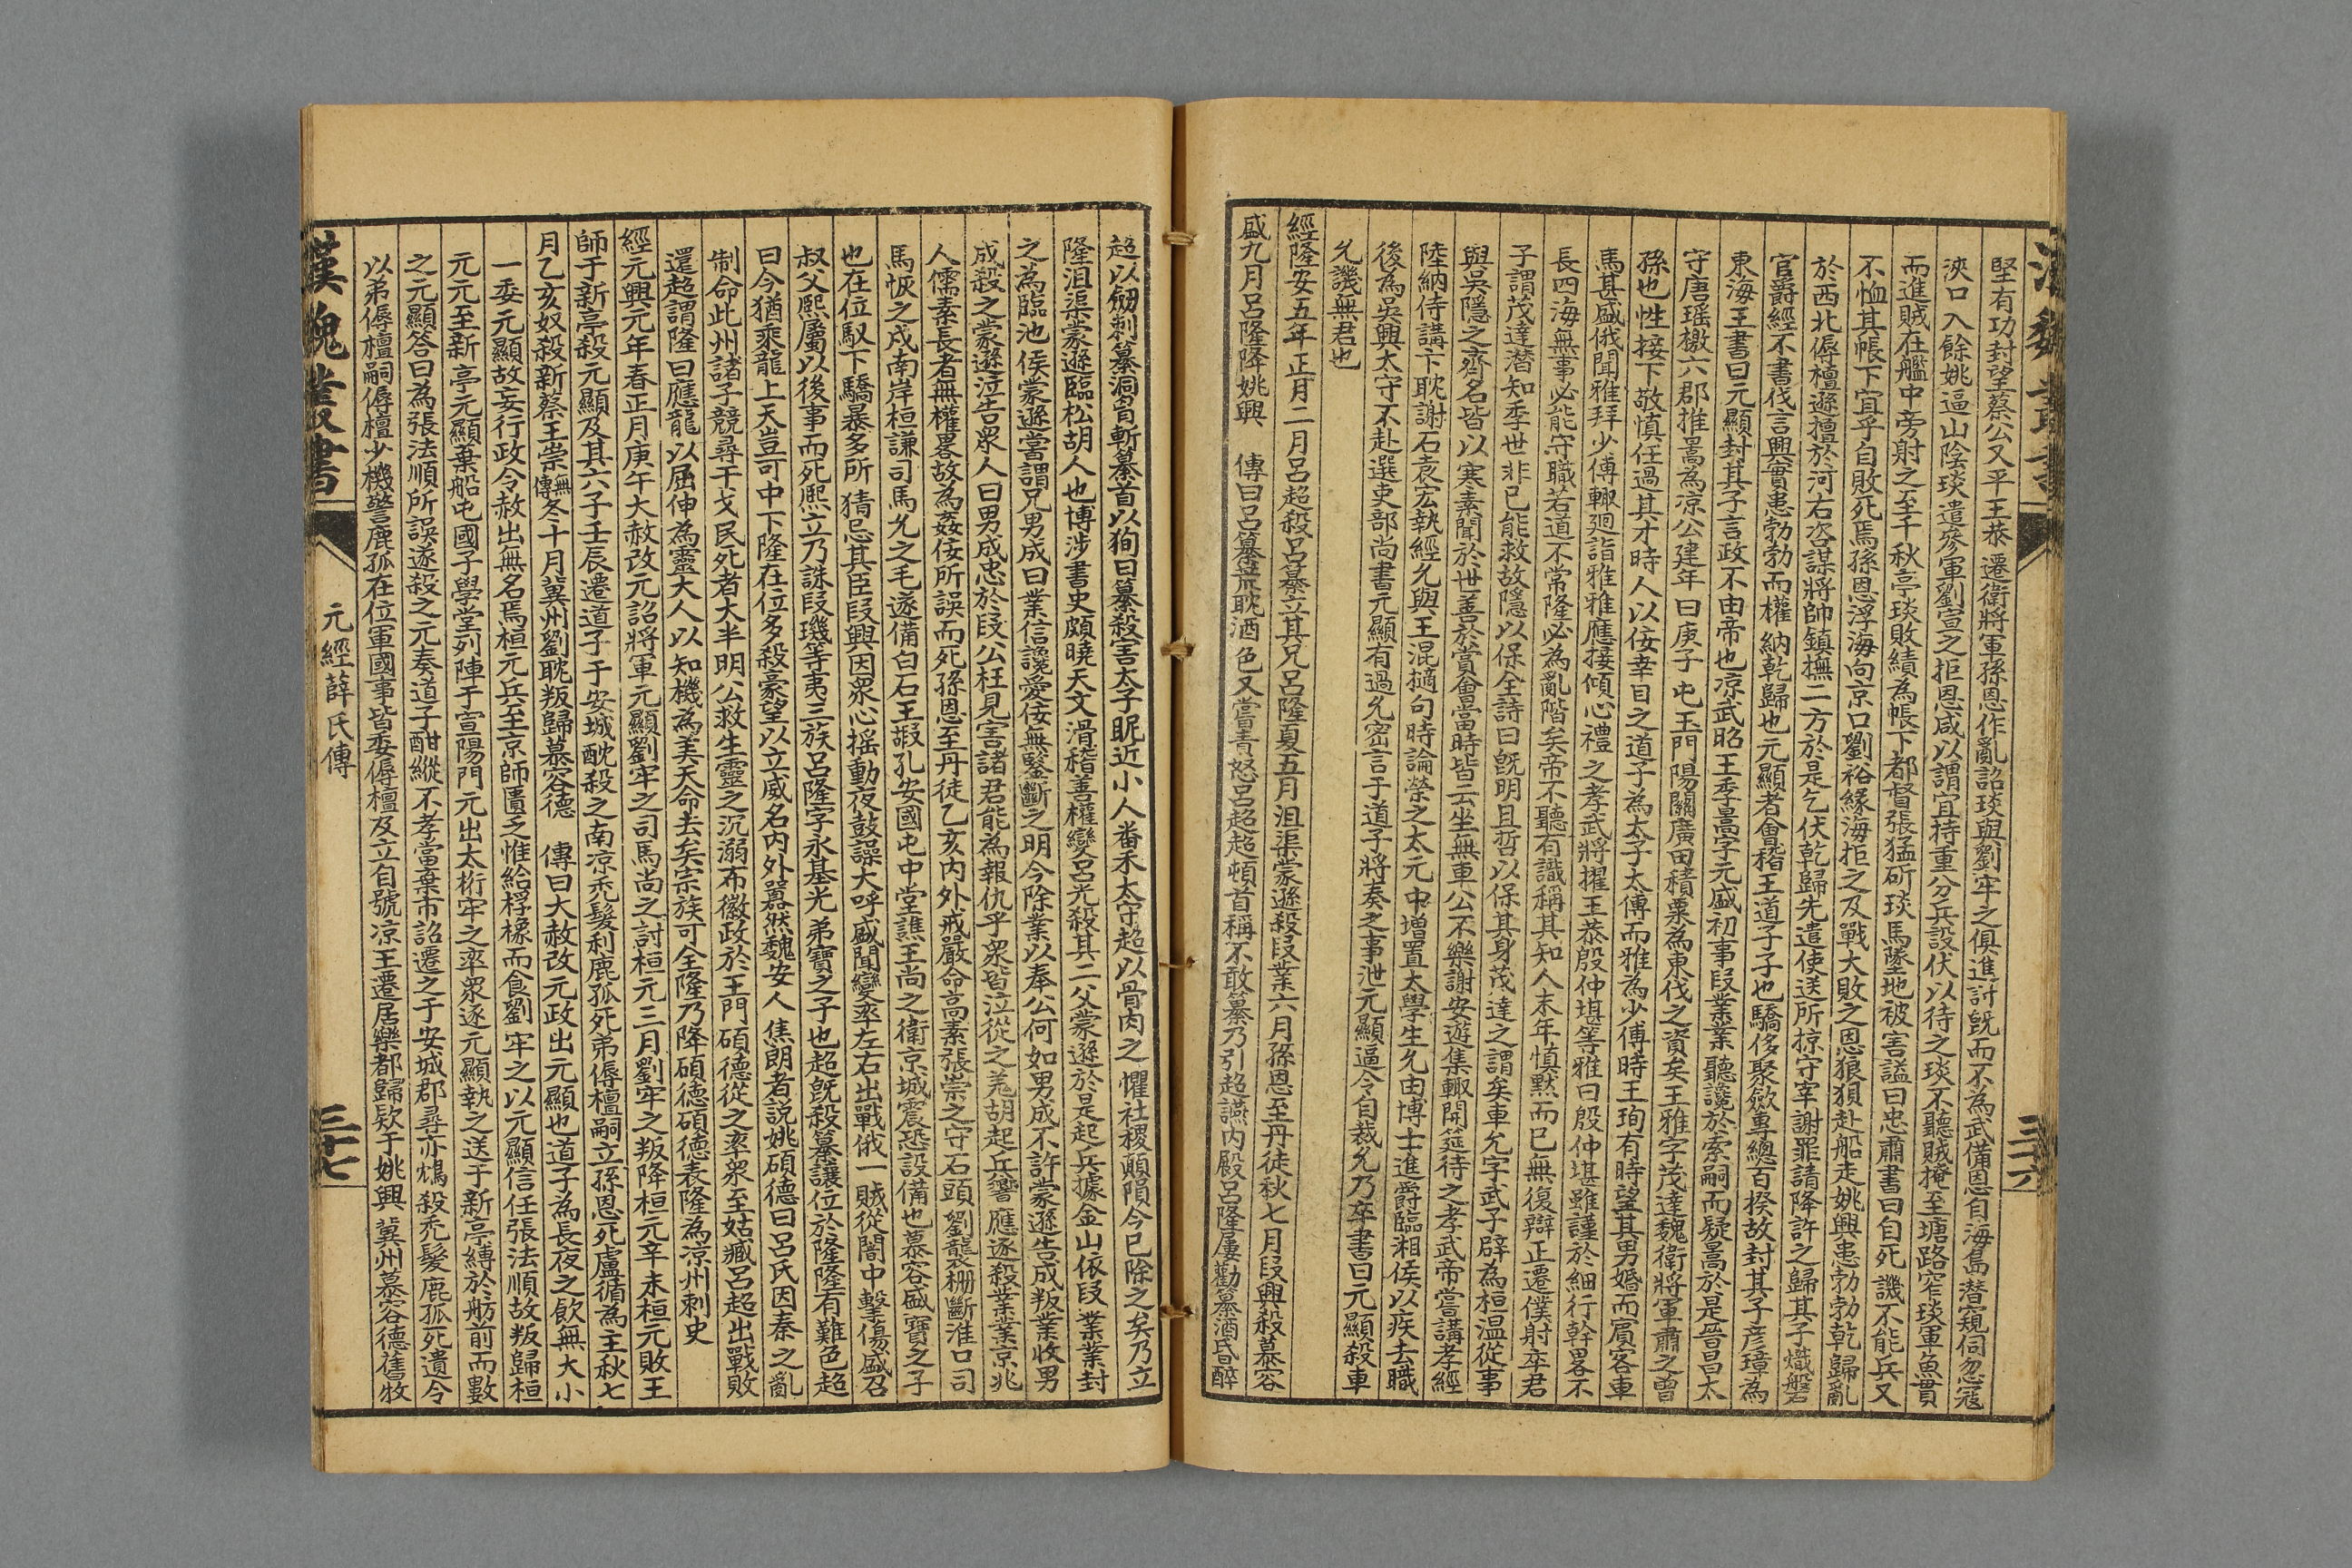 堅有功封望蔡公又平王恭遷衛將軍孫恩作亂詔琰與劉牢之俱進討旣而不為武備恩自海島潜窺伺忽寇
浹口入餘姚逼山陰琰遣參軍劉宣之拒恩咸以謂宜持重分兵設伏以待之琰不聽賊掩至塘路窄琰軍魚貫
而進賊在艦中旁射之至千秋亭琰敗績為帳下都督張猛斫琰馬墜地被害謚曰忠肅書曰自死譏不能兵又
不恤其帳下宜乎自敗死焉孫恩浮海向京口劉裕緣海拒之及戰大敗之恩狼狽赴船走姚興患勃勃乾歸亂
於西北傉檀遜擅於河右咨謀將帥鎮撫二方於是乞伏乾歸先遣使送所掠守宰謝罪請降許之歸其子熾磐
官爵經不書伐言興實患勃勃而權納乾歸也元顯者會稽王道子子也驕侈聚歛專總百揆故封其子彥璋為
東海王書曰元顯封其子言政不由帝也凉武昭王季暠字元盛初事段業業聽讒於索嗣而疑暠於是晉昌太
守唐瑶檄六郡推暠為凉公建年曰庚子屯玉門陽關廣田積粟為東伐之資矣王雅字茂達魏衛將軍肅之曾
孫也性接下敬慎任過其才時人以佞幸目之道子為太子太傅而雅為少傅時王珣有時望其男婚而賓客車
馬甚盛俄聞雅拜少傅輙廻詣雅雅應接傾心禮之孝武將擢王恭殷仲堪等雅曰殷仲堪雖謹於細行幹畧不
長四海無事必能守職若道不常隆必為亂階矣帝不聽有識稱其知人末年慎默而已無復辯正遷僕射卒君
子謂茂達潜知季世非已能救故隱以保全詩曰旣明且哲以保其身茂達之謂矣車允字武子辟為桓温從事
與吳隱之齊名皆以寒素聞於世善於賞會當時皆云坐無車公不樂謝安遊集輙開筵待之孝武帝嘗講孝經
陸納侍講卞耽謝石袁宏執經允與王混擿句時論榮之太元中增置太學生允由博士進爵臨湘侯以疾去職
後為吳興太守不赴選吏部尚書元顯有過允密言于道子將奏之事泄元顯逼令自裁允乃卒書曰元顯殺車
允譏無君也
經隆安五年正月二月呂超殺呂纂立其兄呂隆夏五月沮渠蒙遜殺段業六月孫恩至丹徒秋七月段興殺慕容
盛九月呂隆降姚興　傳曰呂纂荒耽酒色又嘗責怒呂超超頓首稱不敢纂乃引超讌内殿呂隆屢勸纂酒昏醉
超以劒刺纂洞胷斬纂首以狥曰纂殺害太子昵近小人番禾太守超以骨肉之懼社稷顛隕今已除之矣乃立
隆沮渠蒙遜臨松胡人也博涉書史頗曉天文滑稽善權變呂光殺其二父蒙遜於是起兵據金山依段業業封
之為臨池侯蒙遜嘗謂兄男成曰業信讒愛佞無鑒斷之明今除業以奉公何如男成不許蒙遜告成叛業收男
成殺之蒙遜泣告衆人曰男成忠於段公枉見害諸君能為報仇乎衆皆泣從之羌胡起兵響應遂殺業業京兆
人儒素長者無權畧故為姦佞所誤而死孫恩至丹徒乙亥内外戒嚴命高素張崇之守石頭劉襲柵斷淮口司
馬恢之戍南岸桓謙司馬允之毛遂備白石王嘏孔安國屯中堂譙王尚之衛京城震恐設備也慕容盛寶之子
也在位馭下驕暴多所猜忌其臣段興因衆心揺動夜鼓譟大呼盛聞變率左右出戰俄一賊從闇中擊傷盛召
叔父熙屬以後事而死熙立乃誅段璣等夷三族呂隆字永基光弟寶之子也超旣殺纂讓位於隆隆有難色超
曰今猶乘龍上天豈可中下隆在位多殺豪望以立威名内外囂然魏安人焦朗者說姚碩德曰呂氏因秦之亂
制命此州諸子競尋干戈民死者大半明公救生靈之沉溺布徽政於玉門碩德從之率衆至姑臧呂超出戰敗
還超謂隆曰應龍以屈伸為靈大人以知機為美天命去矣宗族可全隆乃降碩德碩德表隆為凉州刺史
經元興元年春正月庚午大赦改元詔將軍元顯劉牢之司馬尚之討桓元三月劉牢之叛降桓元辛未桓元敗王
師于新亭殺元顯及其六子壬辰遷道子于安城酖殺之南凉禿髮利鹿孤死弟傉檀嗣立孫恩死盧循為主秋七
月乙亥奴殺新蔡王崇無傳冬十月冀州劉耽叛歸慕容德　傳曰大赦改元政出元顯也道子為長夜之飲無大小
一委元顯故妄行政令赦出無名焉桓元兵至京師匱乏惟給桴橡而食劉牢之以元顯信任張法順故叛歸桓
元元至新亭元顯棄船屯國子學堂列陣于宣陽門元出太桁牢之率衆逐元顯執之送于新亭縛於舫前而數
之元顯答曰為張法順所誤遂殺之元奏道子酣縱不孝當棄市詔遷之于安城郡尋亦鴆殺禿髮鹿孤死遺令
以弟傉檀嗣傉檀少機警鹿孤在位軍國事皆委傉檀及立自號凉王遷居樂都歸欵于姚興冀州慕容德舊牧
漢魏叢書
元經薛氏傳
三十七
三十六